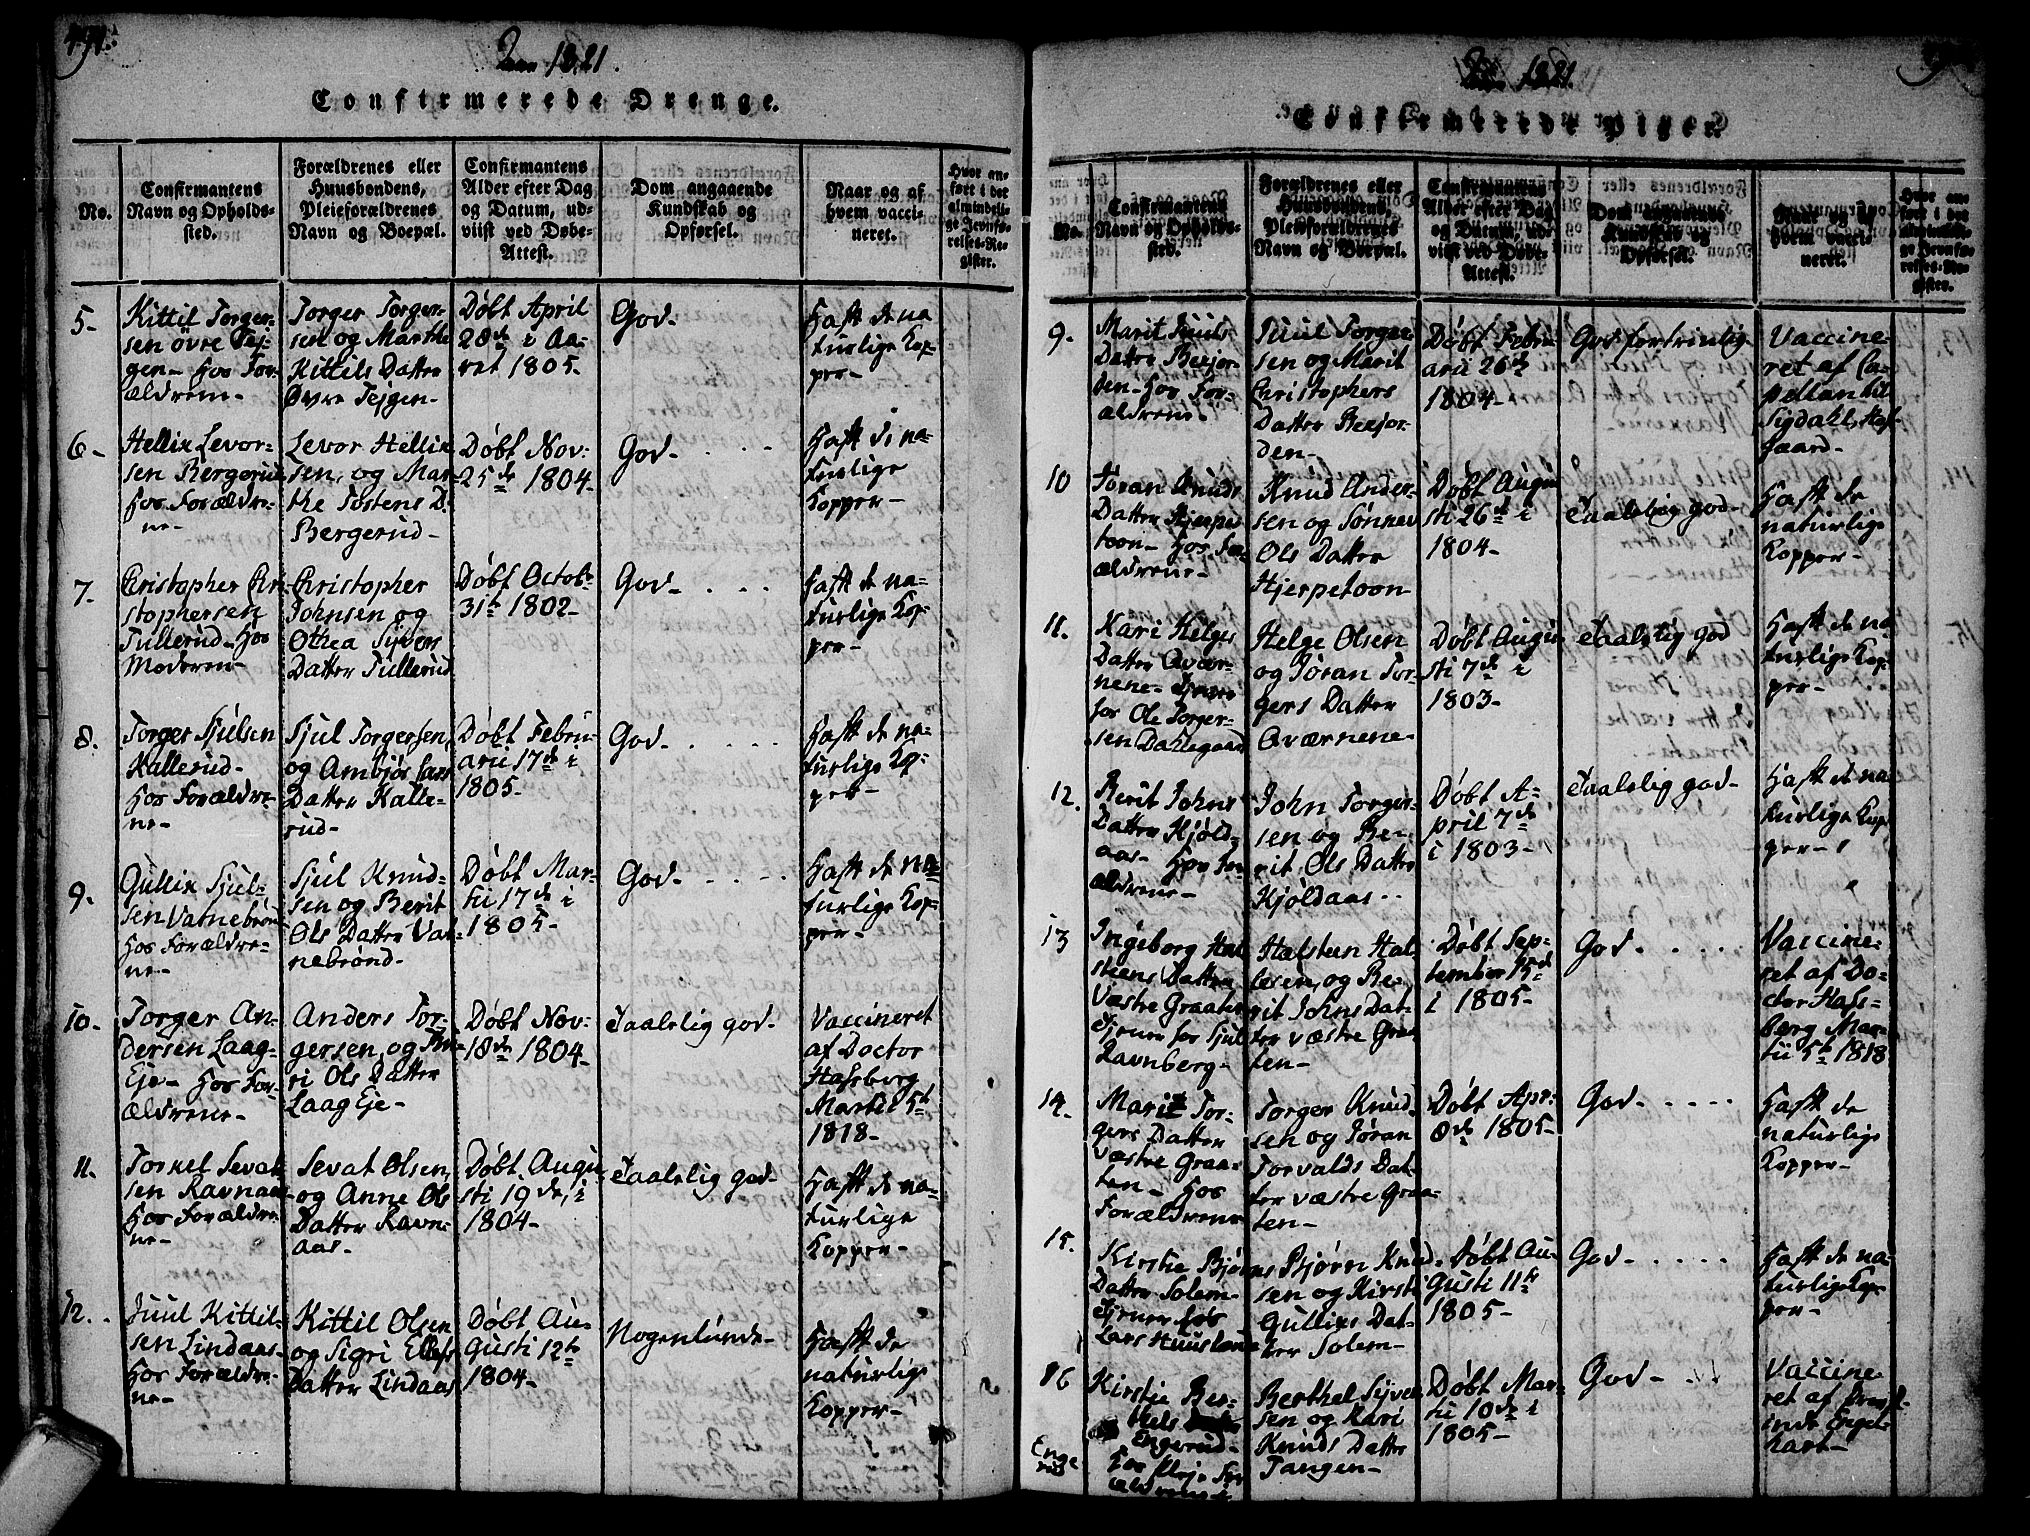 Aar 1821.
Confirmerede Drenge.
No.
Confirmantens
Navn og Opholds-
sted.
Forældrenes eller
Huusbondens,
Pleieforældrenes
Navn og Boepæl.
Confirmantens
Alder efter Dag
og Datum, ud-
viist ved Døbe-
Attest.
Dom angaaende
Kundskab og
Opførsel.
Naar og af
hvem vacci-
neret.
Hvor an-
ført i det
almindeli-
ge Jevnfø-
relses-Re-
gister.
5-
Kittil Torger-
sen øvre Tej-
gen- hos For-
ældrene-
Torger Torger-
sen og Marthe
Kittils Datter
Øvre Tejgen-
Døbt April
28de i Aa-
ret 1805-
God-
Hafft de na
turlige Kop-
per-
6-
Hellix Levor-
sen Bergerud
hos Forældre-
ne-
Levor Hellix
sen, og Mar-
the Tostens D.
Bergerud-
Døbt Nov:
25de 1804-
God-
Hafft de na-
turlige
Kopper-
7.
Christopher Chri-
stophersen
Tullerud-hos
Moderen-
Christopher
Johnsen og
Othea Sÿvers
Datter Tullerud
Døbt Octob:
31te 1802-
God-
Hafft de na-
turlige Kop-
per-
8.
Torger Sjulsen
Kallerud-
hos Forældre-
ne-
Sjul Torgersen,
og Ambjør Lars
Datter Kalle-
rud-
Døbt Febru-
arii 17de i
1805-
God-
Hafft de na-
turlige Kop-
per-
9.
Gullix Sjul-
sen Vatnebrøn
hos Forældre-
ne-
Sjul Knud-
sen og Berit
Ols Datter Vat-
nebrønd-
Døbt Mar-
tii 17de i
1805-
God-
Hafft de na-
turlige Kop-
per-
10-
Torger An-
dersen Laag-
Eje- hos For-
ældrene-
Anders Tor-
gersen, og
Ols Datter
Laag Eje-
Døbt Nov:
18de 1804-
Taalelig god-
Vaccineret
af Doctor
Hafsberg
Martii 5te
1818-
11.
Torkel Sevat
sen Ravnaas
hos Forældre-
ne-
Sevat Olsen,
og Anne Ols
Datter Ravn-
aas-
Døbt Augu-
sti 19de, i
1804-
Taalelig god-
Hafft de na-
turlige
Kopper-
12.
Juul Kittil-
sen Lindaas-
hos Forældre-
ne-
Kittil Olsen
og Sigri Ellefs
Datter Lindaas
Døbt Au-
gusti 12te
1804-
Nogenlunde-
Hafft de
naturlige
Kopper-
1821.
Confirmerede Piger.
No.
Confirmantens
Navn og Opholds-
sted.
Forældrenes eller
Huusbondens,
Pleieforældrenes
Navn og Boepæl.
Confirmantens
Alder efter Dag
og Datum, ud-
viist ved Døbe-
Attest.
Dom angaaende
Kundskab og
Opførsel.
Naar og af
hvem vacci-
neret.
Hvor an-
ført i det
almindeli-
ge Jevnfø-
relses-Re-
gister.
9.
Marit Juuls
Datter Beejor-
den-hos For-
ældrene-
Juul Torger
sen og Marit
Christophers
Datter Beejor-
den-
Døbt Febru
arii 26de
1804-
God fortrinlig
Vaccine-
ret af Ca-
pellan til
Sigdahl,
gaard-
10
Jøran Knuds
Datter Hjerpe
toon- hos For-
ældrene-
Knud Ander-
sen og Sønnev
Ols Datter
Hjerpetoon
Døbt Augu
sti 26de i
1804-
Taalelig god-
Hafft de
naturlige
Kopper-
11.
Kari Helges
Datter Aværn-
nene- tjener
hos Ole Torger-
sen Dahlegaard
Helge Olsen
og Jøran Tor-
gers Datter
Aværnene-
Døbt Augu
sti 7de i
1803-
Taalelig god
Hafft de na-
turlige Kop-
per-
12.
Berit Johns
Datter Kjøld-
aas- hos For-
ældrene-
John Torger-
sen og Be-
rit Ols Datter
Kjøldaas-
Døbt A-
pril 7de
i 1803-
Taalelig god-
Hafft de na-
turlige Kop
per-
13
Ingeborg Hal
steens Datter
Væstre Graaten
tjener hos Sjul
Ravnberg-
Halsteen Hal-
steensen, og Be-
rit Johns Dat-
ter væstre Graa
ten-
Døbt Sep-
tember 15de
i 1805-
God-
Vaccine-
ret af Do-
ctor Hafs-
berg Mar-
tii 5te 1818
14.
Marit Tor-
gers Datter
Væstre Graa-
ten- hos
Forældrene
Torger Knud-
sen og Jøran
Torvalds Dat-
ter væstre Graa-
ten-
Døbt Apr:
8de 1805-
God-
Hafft de
naturlige
Kopper-
15.
Kirstie Bjørns
Datter Solem-
tjener hos
Lars Huuslænd
Bjørn Knud-
sen og Kirsti
Gullixs Dat-
ter Solem-
Døbt Au-
gusti 11te
1805-
God-
Hafft de na-
turlige Kop
per-
16
Kirstie Ber-
thels
Engerud-
hos Pleje For
ældrene
Enge
rud
Berthel Sÿver
sen og Kari
Knuds Datter
Tangen-
Døbt Mar-
tii 10de i
1805-
God-
Vaccine-
ret af
Engel-
hart-